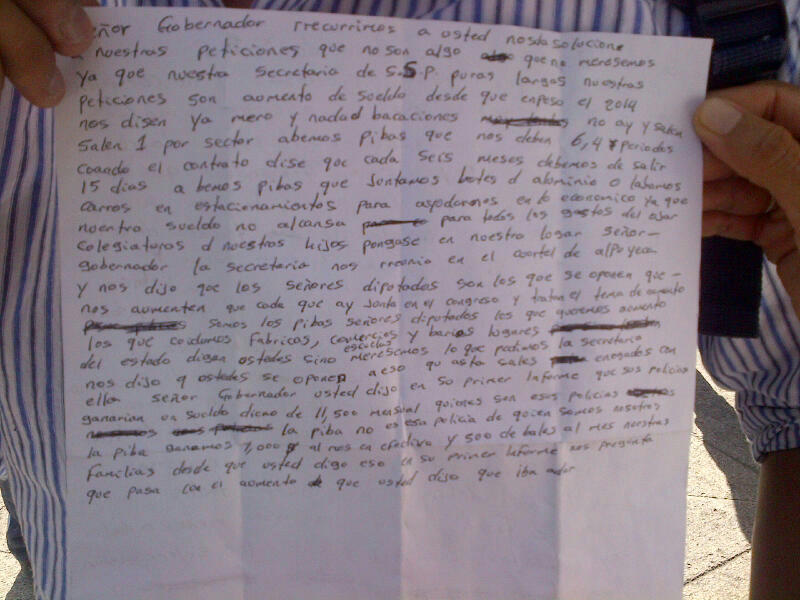 eñor Gobernador rrecurrimos a usted nos da solucione
a nuestras peticiones que no son algo que no meresemos
ya que nuestra secretaria de S.S.P. puras largas nuestras
peticiones son aomento de sueldo desde que enpeso el 2014
nos disen ya mero y nada d bacaciones no ay y salen
salen 1 por sector abemos pibas que nos deben 6,4 periodos
coando el contrato dise que cada seis meses debemos de salir
15 dias a bemos pibas que juntamos botes d aluminio o labamos
carros en estacionamientos para aspodoronos en lo economico ya que
nuentro sueldo no alcansa para todos los gastos del ojar
colegiaturas d nuestros hijos pongase en nuestro logar señor-
gobernador la secretaria nos rreonio en el coortel de alpoyeca
y nos dijo que los señores dipotados son los que se oponen que-
nos aumenten que cada que ay Junta en el congreso y tratan el tema de aomento
semos los pibas señores diputados los que queremos aomento
los que coidamos fabricas, comercios y barios lugares
escuelas
del estado digan ostedes sino meresemos lo que pedimos la secretaria
nos dijo q ostedes se oponen a eso qu asta sales enogados con
ella señor Gobernador usted dijo en su primer Informe que sus policias
ganarian un sueldo dicno de 11,500 mensual quienes son esos policias
la piba no es esa policia de quien somos nosotros
la piba ganamos 7,000 al mes en efectivo y 500 de bales al mes nuestras
Familias desde que usted digo eso en su primer Informe nos pregunta
que pasa con el aomento de que usted dijo que iba a dar